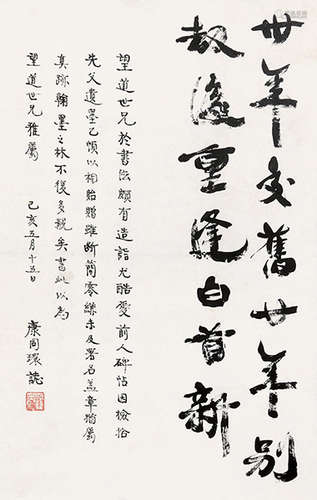 卅年交舊廿年別
劫後重逢白首新
望道世兄於書法頗有造詣尤酷愛前人碑帖因檢拾
先父遺墨乙幀以相貽贈雖斷簡零縑未及署名蓋章猶屬
真跡翰墨之林不復多覯矣書此以為
望道世兄雅屬
己亥五月十五日
康同環誌